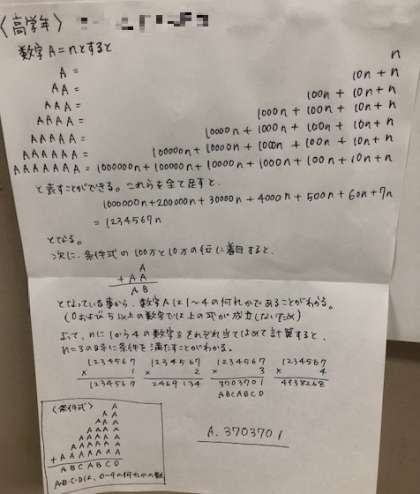 〈高学年〉
数字A=nとすると
A = n
AA = 10n + n
AAA = 100n + 10n + n
AAAA = 1000n + 100n + 10n + n
AAAAA = 10000n + 1000n + 100n + 10n + n
AAAAAA = 100000n + 10000n + 1000n + 100n + 10n + n
AAAAAAA = 1000000n + 100000n + 10000n + 1000n + 100n + 10n + n
と表すことができる。これらを全て足すと
1000000n + 200000n + 30000n + 4000n + 500n + 60n + 7n
= 1234567n
となる。
次に、条件式の100万と10万の位に着目すると、
A
+ A A
A B
となっている事から、数字Aは1~4の何れかであることがわかる。
(0および5以上の数字では上の式が成立しないため)
よって、nに1から4の数字をそれぞれ当てはめて計算すると、
n=3の時に条件を満たすことがわかる。
1234567 1234567 1234567 1234567
× 1 × 2 × 3 × 4
1234567 2469134 3703701 4938268
ABCABCD
〈条件式〉
A
A A
A A A
A A A A
A A A A A
A A A A A A
+ A A A A A A A
A B C A B C D
A・B・C・Dは、0~9の何れかの数
A. 3703701